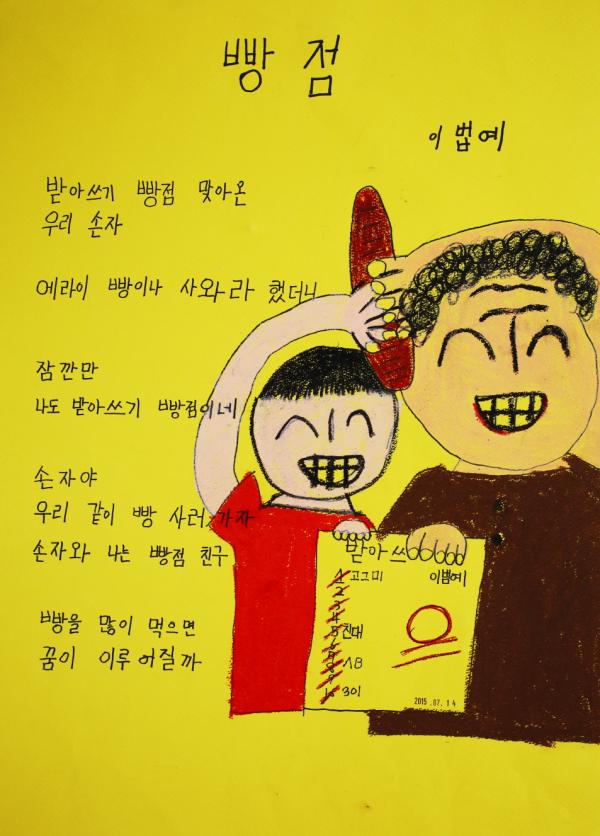 빵 점
이 법예
받아쓰기 빵점 맞아온
우리 손자
에라이 빵이나 사와라 했더니
잠깐만
나도 받아쓰기 빵점이네
손자야
우리 같이 빵 사러 가자
손자와 나는 빵점 친구
빵을 많이 먹으면
꿈이 이루어질까
받아쓰
고그미 이법예
친대
AB
301
2015.07.14